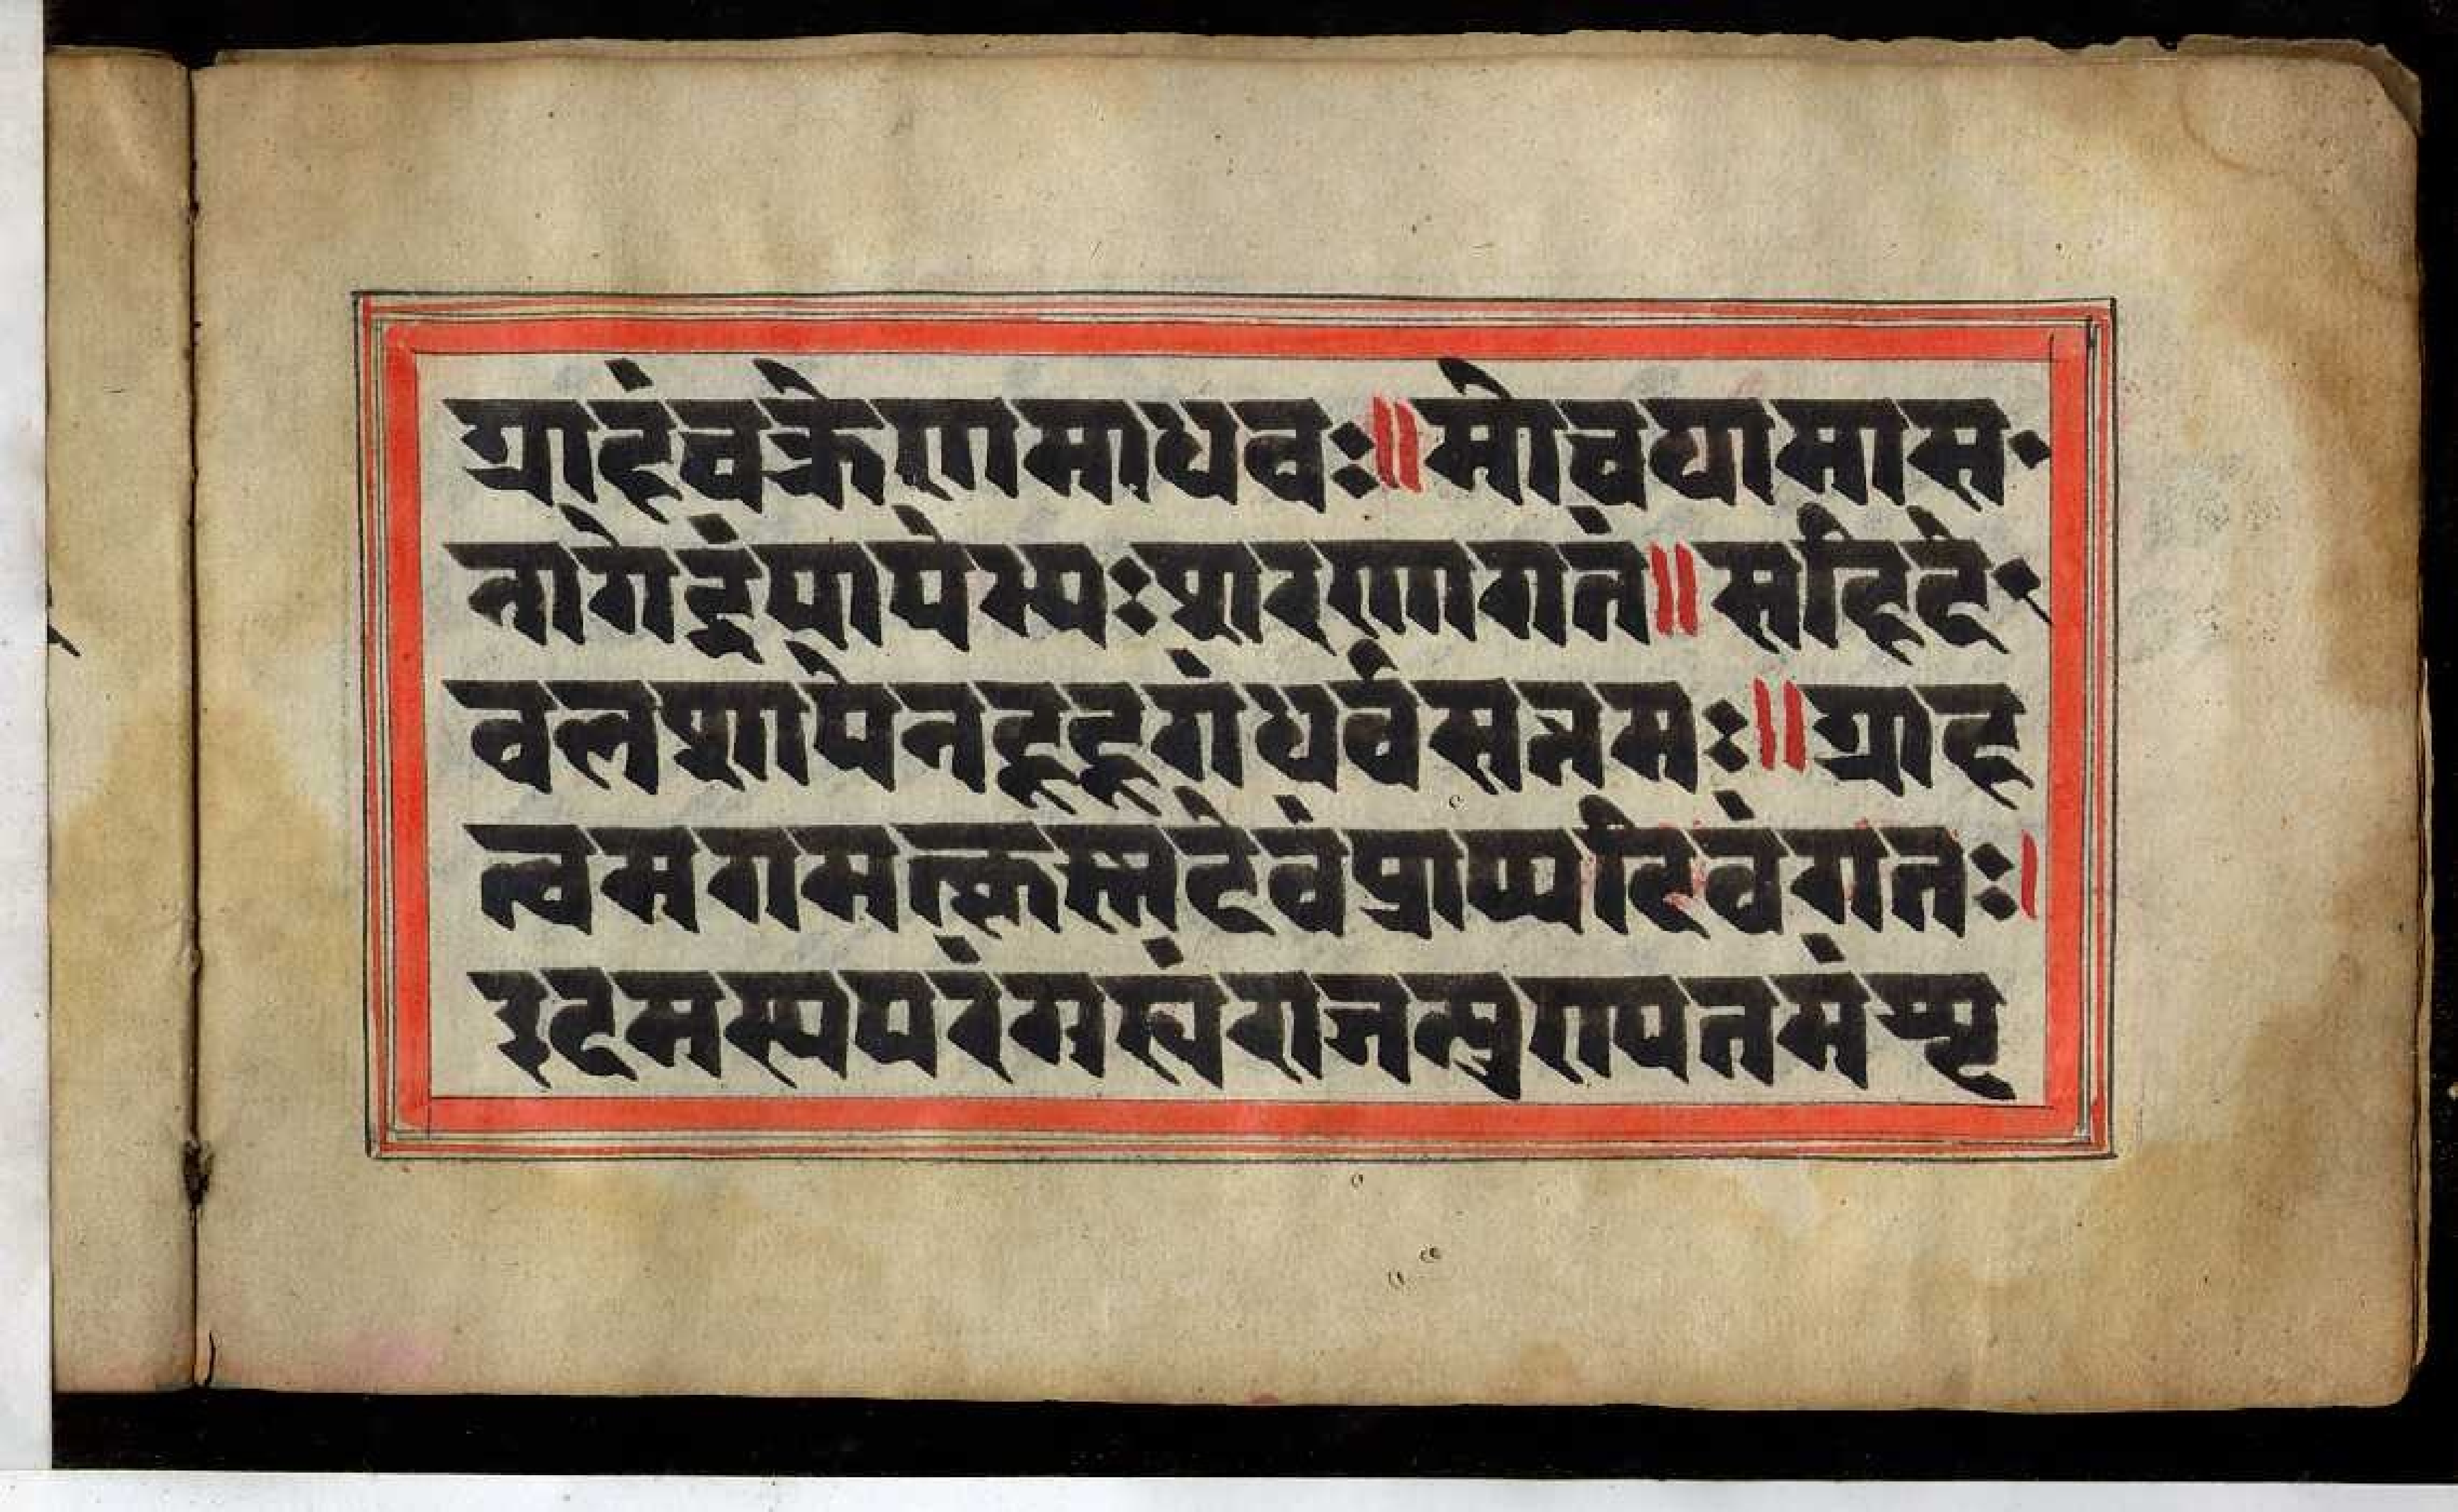 ग्राहंचक्रेणमाधवः॥मोचयामास
नागेंद्रंपापेभ्यःशरणागतं॥सहिदे
वलशापेनहूहूगंधर्वसत्तमः॥ग्राह
त्वमगमत्कृस्नदेवंप्राप्यदिवंगतः।
इदमस्यपरंगुह्यंराजन्पुण्यतमंशृ